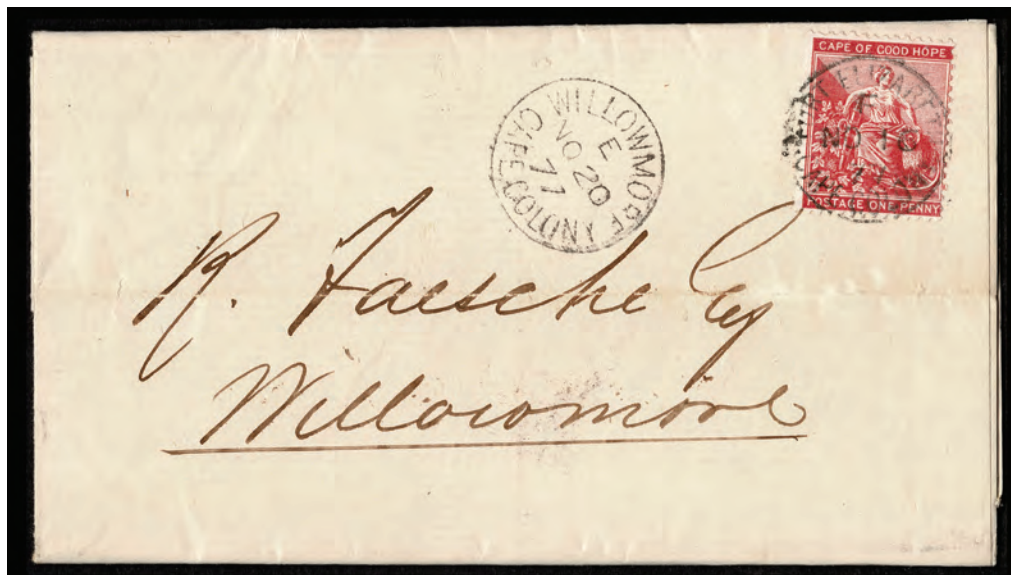 CAPE OF GOOD HOPE
POSTAGE ONE PENNY
WILLOWMORE
E
NO 20
77
CAPE COLONY
R. Faesche Esq
Willowmore